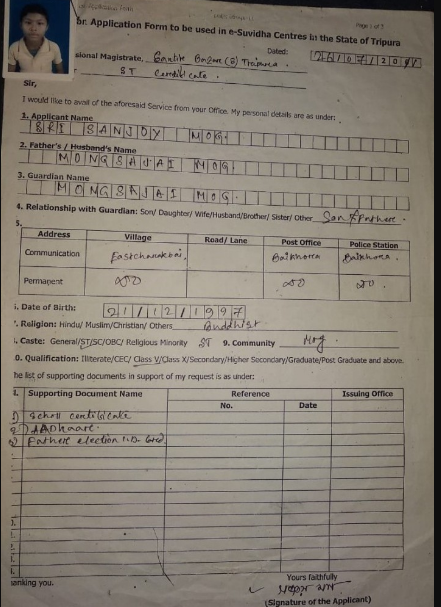 Page 1 of 7
Application Form to be used in e-Suvidha Centres in the State of Tripura
Dated:
sional Magistrate,
ST Certificate.
Sir,
I would like to avail of the aforesaid Service from your Office. My personal details are as under:
1. Applicant Name
SRI SANJOY MOG.
2. Father's / Husband's Name
MONGSAJAI MOG.
3. Guardian Name
MONGSAJAI MOG.
4. Relationship with Guardian: Son/ Daughter/ Wife/Husband/Brother/ Sister/ Other
5.
Address Village Road/ Lane Post Office Police Station
Communication Baikhora Baikhora.
Permanent
. Date of Birth: 01/12/1997
. Religion: Hindu/ Muslim/Christian/ Others Buddhist
. Caste: General/ST/SC/OBC/ Religious Minority ST 9. Community Mog
0. Qualification: Illiterate/CEC/ Class V/Class X/Secondary/Higher Secondary/Graduate/Post Graduate and above.
he list of supporting documents in support of my request is as under:
Supporting Document Name Reference Issuing Office
No. Date
1) Scholl certificate
2) AADhaart.
3) Fathers election I.D. Card.
anking you.
Yours faithfully
(Signature of the Applicant)